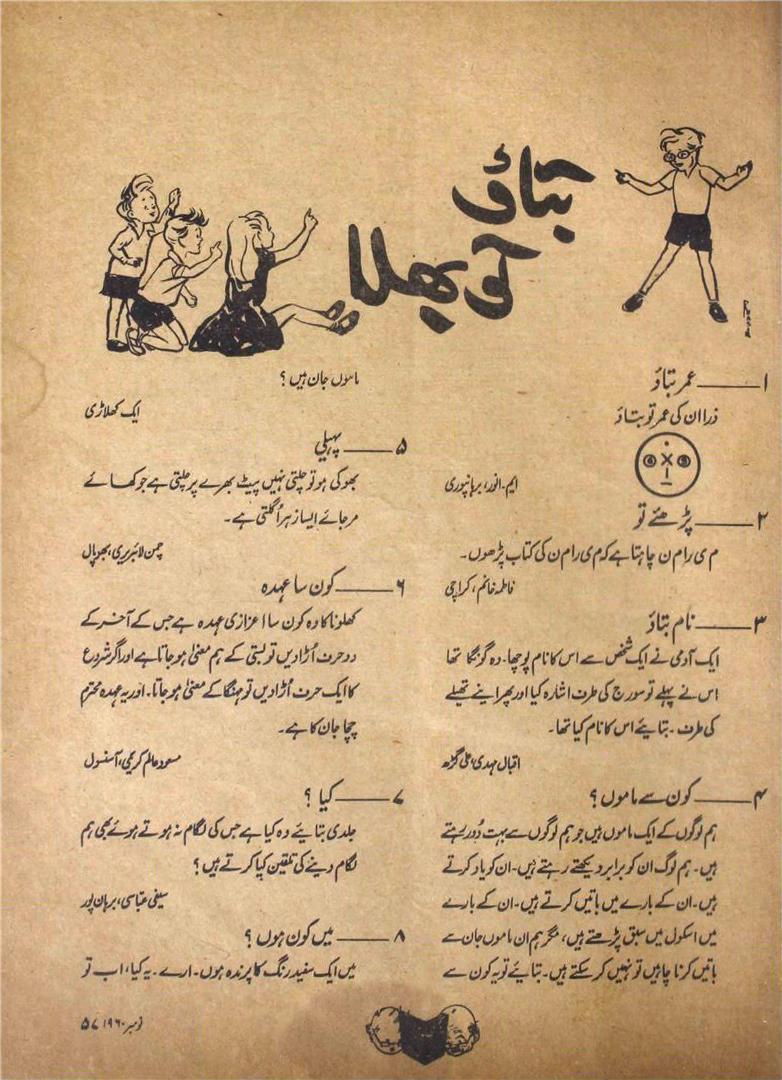 بتاؤ
تو بھلا
۱ــــــ عمر بتاؤ
ذرا ان کی عمر تو بتاؤ
ایم۔ انور، برہانپوری
۲ــــــ پڑھئے تو
م ی را م ن چاہتا ہے کہ م ی را م ن کی کتاب پڑھوں۔
فاطمہ خانم، کراچی
۳ــــــ نام بتاؤ
ایک آدمی نے ایک شخص سے اس کا نام پوچھا۔ وہ گونگا تھا
اس نے پہلے تو سورج کی طرف اشارہ کیا اور پھر اپنے تھیلے
کی طرف۔ بتایئے اس کا نام کیا تھا۔
اقبال مہدی، علی گڑھ
۴ــــــ کون سے ماموں؟
ہم لوگوں کے ایک ماموں ہیں جو ہم لوگوں سے بہت دُور رہتے
ہیں۔ ہم لوگ ان کو برابر دیکھتے رہتے ہیں۔ ان کو یاد کرتے
ہیں۔ ان کے بارے میں باتیں کرتے ہیں۔ ان کے بارے
میں اسکول میں سبق پڑھتے ہیں، مگر ہم ان ماموں جان سے
باتیں کرنا چاہیں تو نہیں کر سکتے ہیں۔ بتایئے تو یہ کون سے
ماموں جان ہیں؟
ایک کھلاڑی
۵ــــــ پہیلی
بھوکی ہو تو چلتی نہیں پیٹ بھرے پر چلتی ہے جو کھائے
مر جائے ایسا زہر اُگلتی ہے۔
چمن لائبریری، بھوپال
۶ــــــ کون سا عہدہ
کھلونا کا وہ کون سا اعزازی عہدہ ہے جس کے آخر کے
دو حرف اُڑا دیں تو بستی کے ہم معنیٰ ہو جاتا ہے اور اگر شروع
کا ایک حرف اُڑا دیں تو مہنگا کے معنیٰ ہو جاتا۔ اور یہ عہدہ محترم
چچا جان کا ہے۔
مسعود عالم کریمی، آسنسول
۷ــــــ کیا؟
جلدی بتایئے وہ کیا ہے جس کی لگام نہ ہوتے ہوئے بھی ہم
لگام دینے کی تلقین کیا کرتے ہیں؟
سیفی عباسی، برہان پور
۸ــــــ میں کون ہوں؟
میں ایک سفید رنگ کا پرندہ ہوں۔ ارے۔ یہ کیا، اب تو
نومبر ۱۹۶۰ء ۵۷